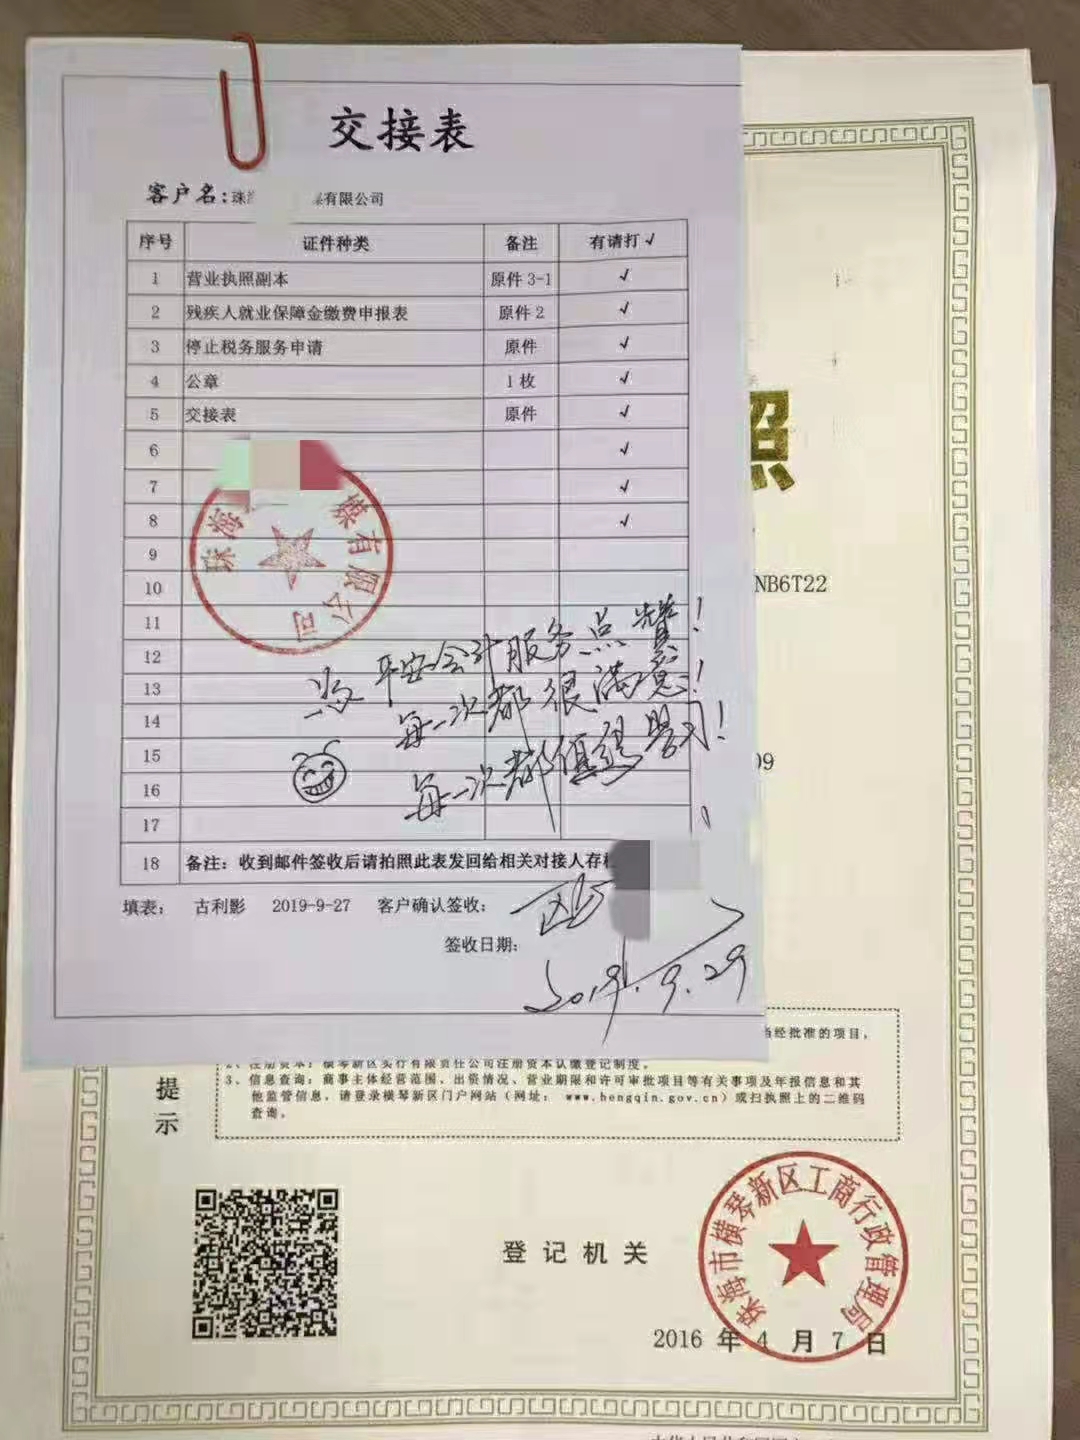 交接表
客户名：珠海 媒有限公司
序号 证件种类 备注 有请打√
1 营业执照副本 原件 3-1 √
2 残疾人就业保障金缴费申报表 原件 2 √
3 停止税务服务申请 原件 √
4 公章 1 枚 √
5 交接表 原件 √
6 √
7 √
8 √
9
10
11
12
13
14
15
16
17
珠海 媒有限公司
为平安会计服务点赞！
每一次都很满意！
每一次都值得学习！
18 备注：收到邮件签收后请拍照此表发回给相关对接人存
填表： 古利影 2019-9-27 客户确认签收：
签收日期：
2019.9.29
照
NB6T22
09
经批准的项目，
提示
2、注册资本：横琴新区实行有限责任公司注册资本认缴登记制度。
3、信息查询：商事主体经营范围、出资情况、营业期限和许可审批项目等有关事项及年报信息和其
他监管信息，请登录横琴新区门户网站（网址： www.hengqin.gov.cn）或扫执照上的二维码
查询。
登记机关
珠海市横琴新区工商行政管理局
2016 年 4 月 7 日